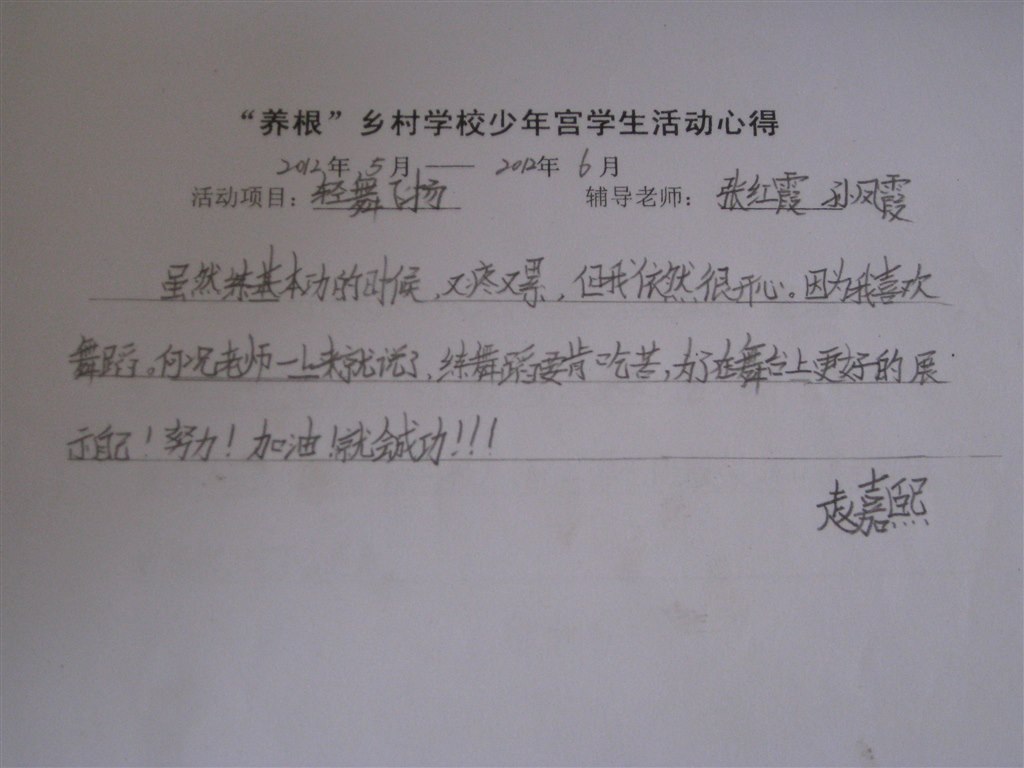 “养根”乡村学校少年宫学生活动心得
2012年 5月 —— 2012年 6月
活动项目：轻舞飞扬 辅导老师：张红霞 孙凤霞
虽然练基本功的时候，又疼又累，但我依然很开心。因为我喜欢
舞蹈。何况老师一上来就说了，练舞蹈要肯吃苦，为了在舞台上更好的展
示自己！努力！加油！就会成功！！！
赵嘉熙